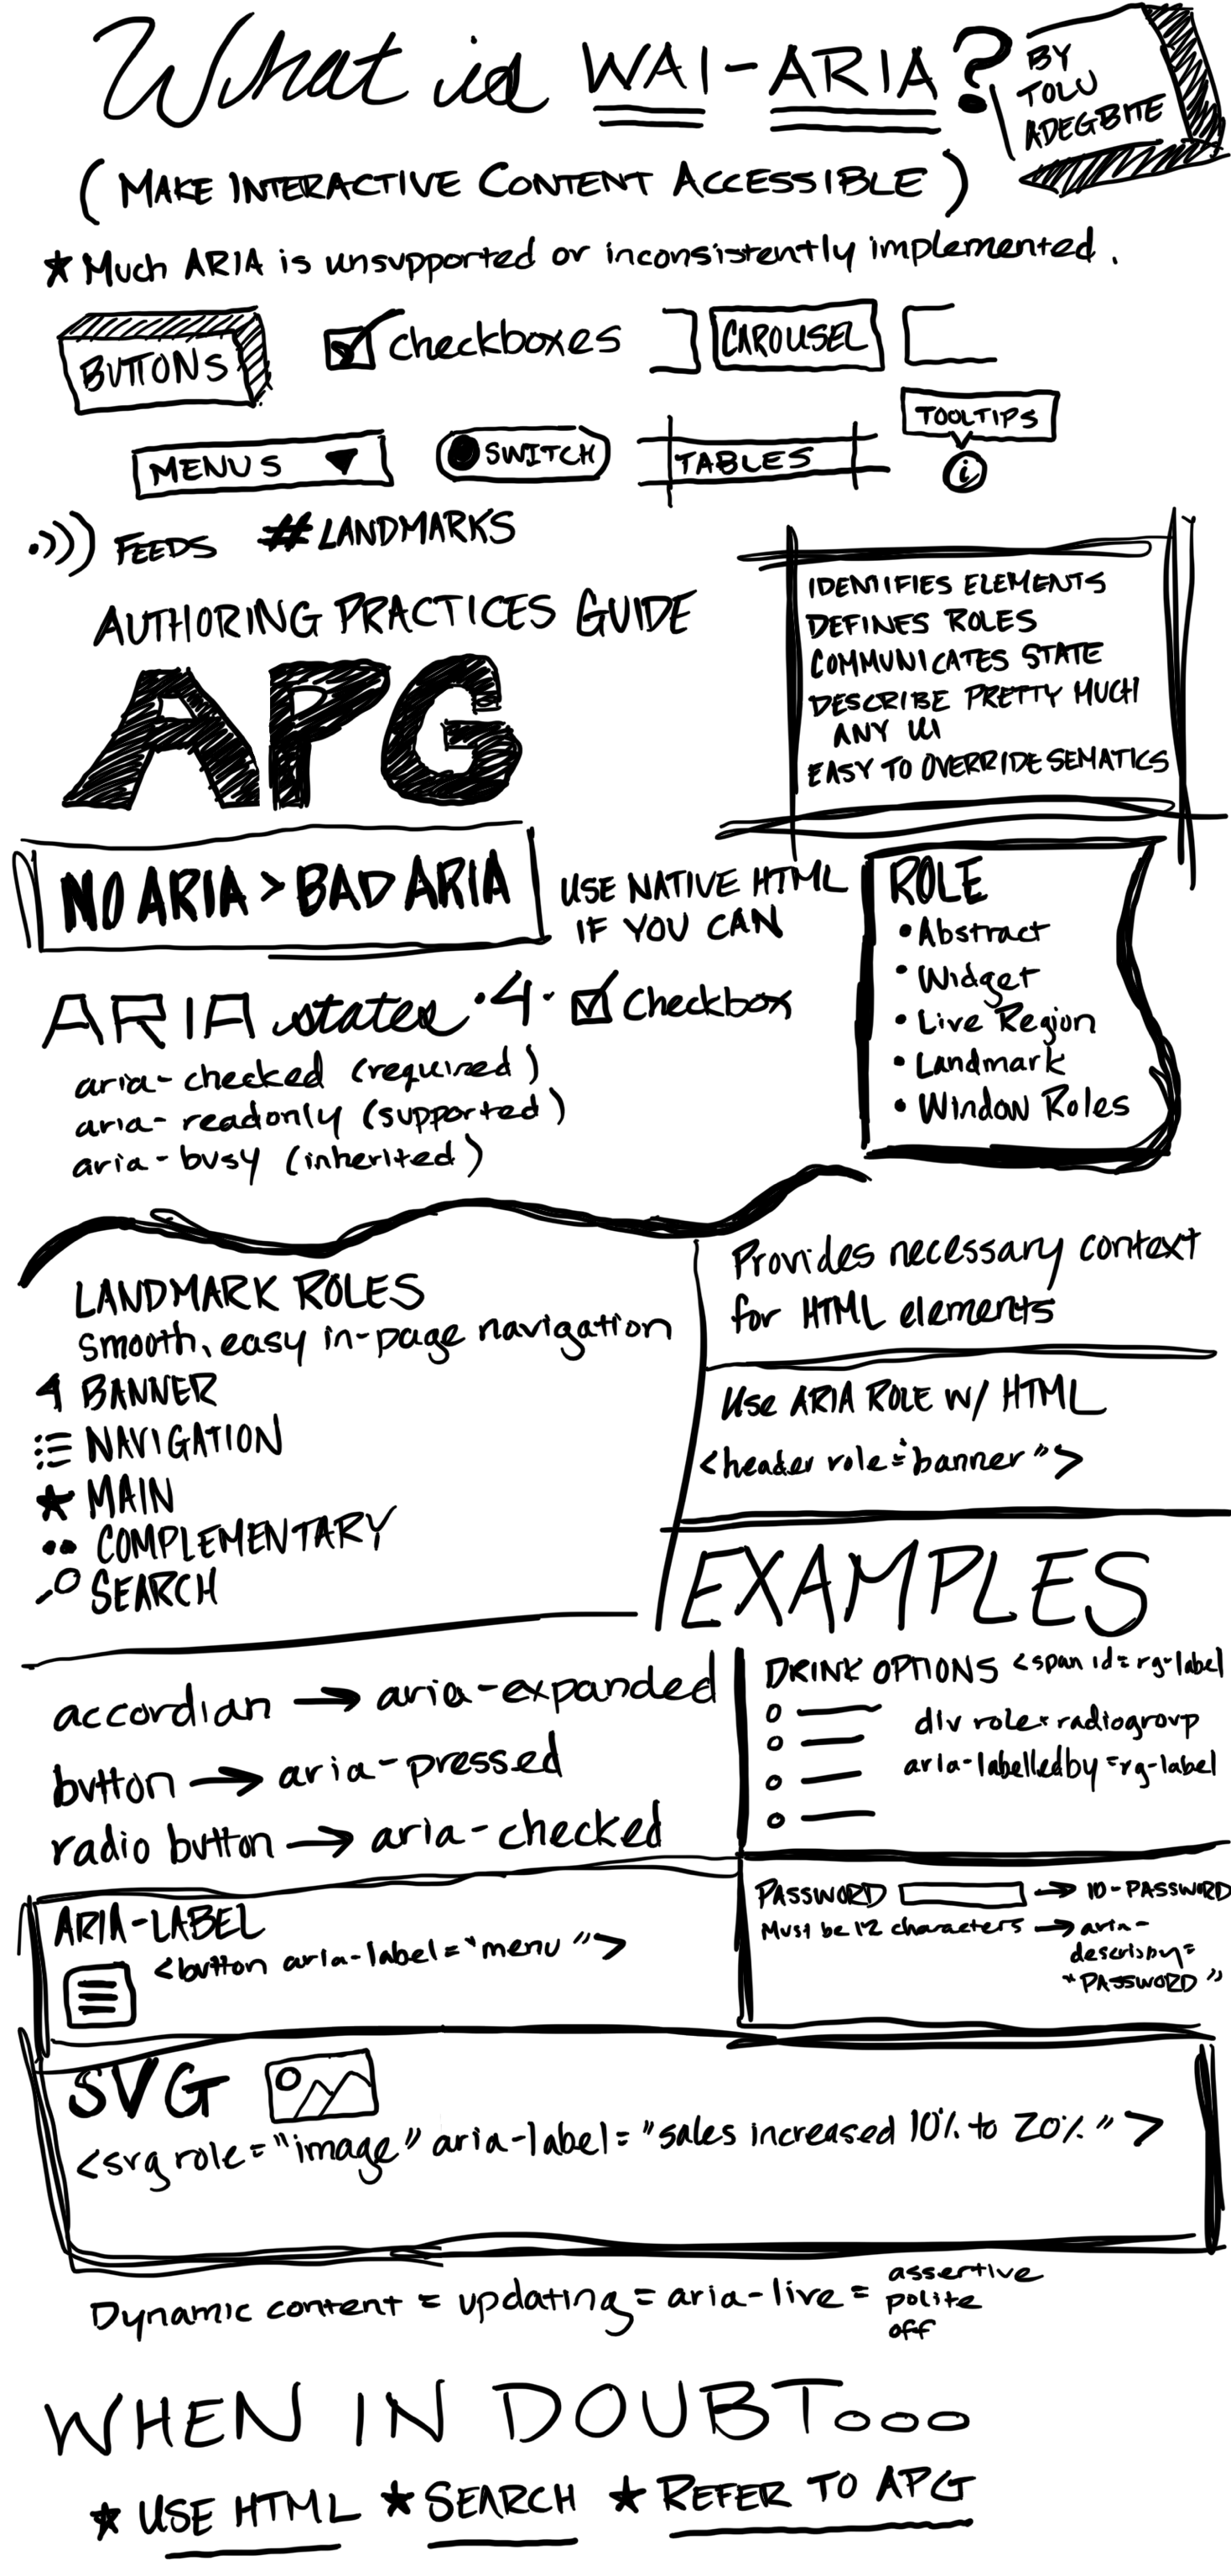 What is WAI-ARIA?
BY
TOLU
ADEGBITE
(MAKE INTERACTIVE CONTENT ACCESSIBLE)
★ Much ARIA is unsupported or inconsistently implemented.
BUTTONS
checkboxes
CAROUSEL
MENUS
SWITCH
TABLES
TOOLTIPS
i
FEEDS
#LANDMARKS
AUTHORING PRACTICES GUIDE
APG
IDENTIFIES ELEMENTS
DEFINES ROLES
COMMUNICATES STATE
DESCRIBE PRETTY MUCH
ANY UI
EASY TO OVERRIDE SEMATICS
NO ARIA > BAD ARIA
USE NATIVE HTML
IF YOU CAN
ROLE
• Abstract
• Widget
• Live Region
• Landmark
• Window Roles
ARIA states ·4· Checkbox
aria-checked (required)
aria-readonly (supported)
aria-busy (inherited)
LANDMARK ROLES
smooth, easy in-page navigation
BANNER
NAVIGATION
★ MAIN
COMPLEMENTARY
SEARCH
Provides necessary context
for HTML elements
Use ARIA ROLE W/ HTML
<header role="banner">
EXAMPLES
accordian → aria-expanded
button → aria-pressed
radio button → aria-checked
DRINK OPTIONS <span id=rg-label
div role=radiogroup
aria-labelledby=rg-label
PASSWORD → ID-PASSWORD
Must be 12 characters → aria-
"PASSWORD"
ARIA-LABEL
<button aria-label="menu">
SVG
<svg role="image" aria-label="sales increased 10% to 20%">
Dynamic content = updating = aria-live = assertive
polite
off
WHEN IN DOUBT...
★ USE HTML ★ SEARCH ★ REFER TO APG